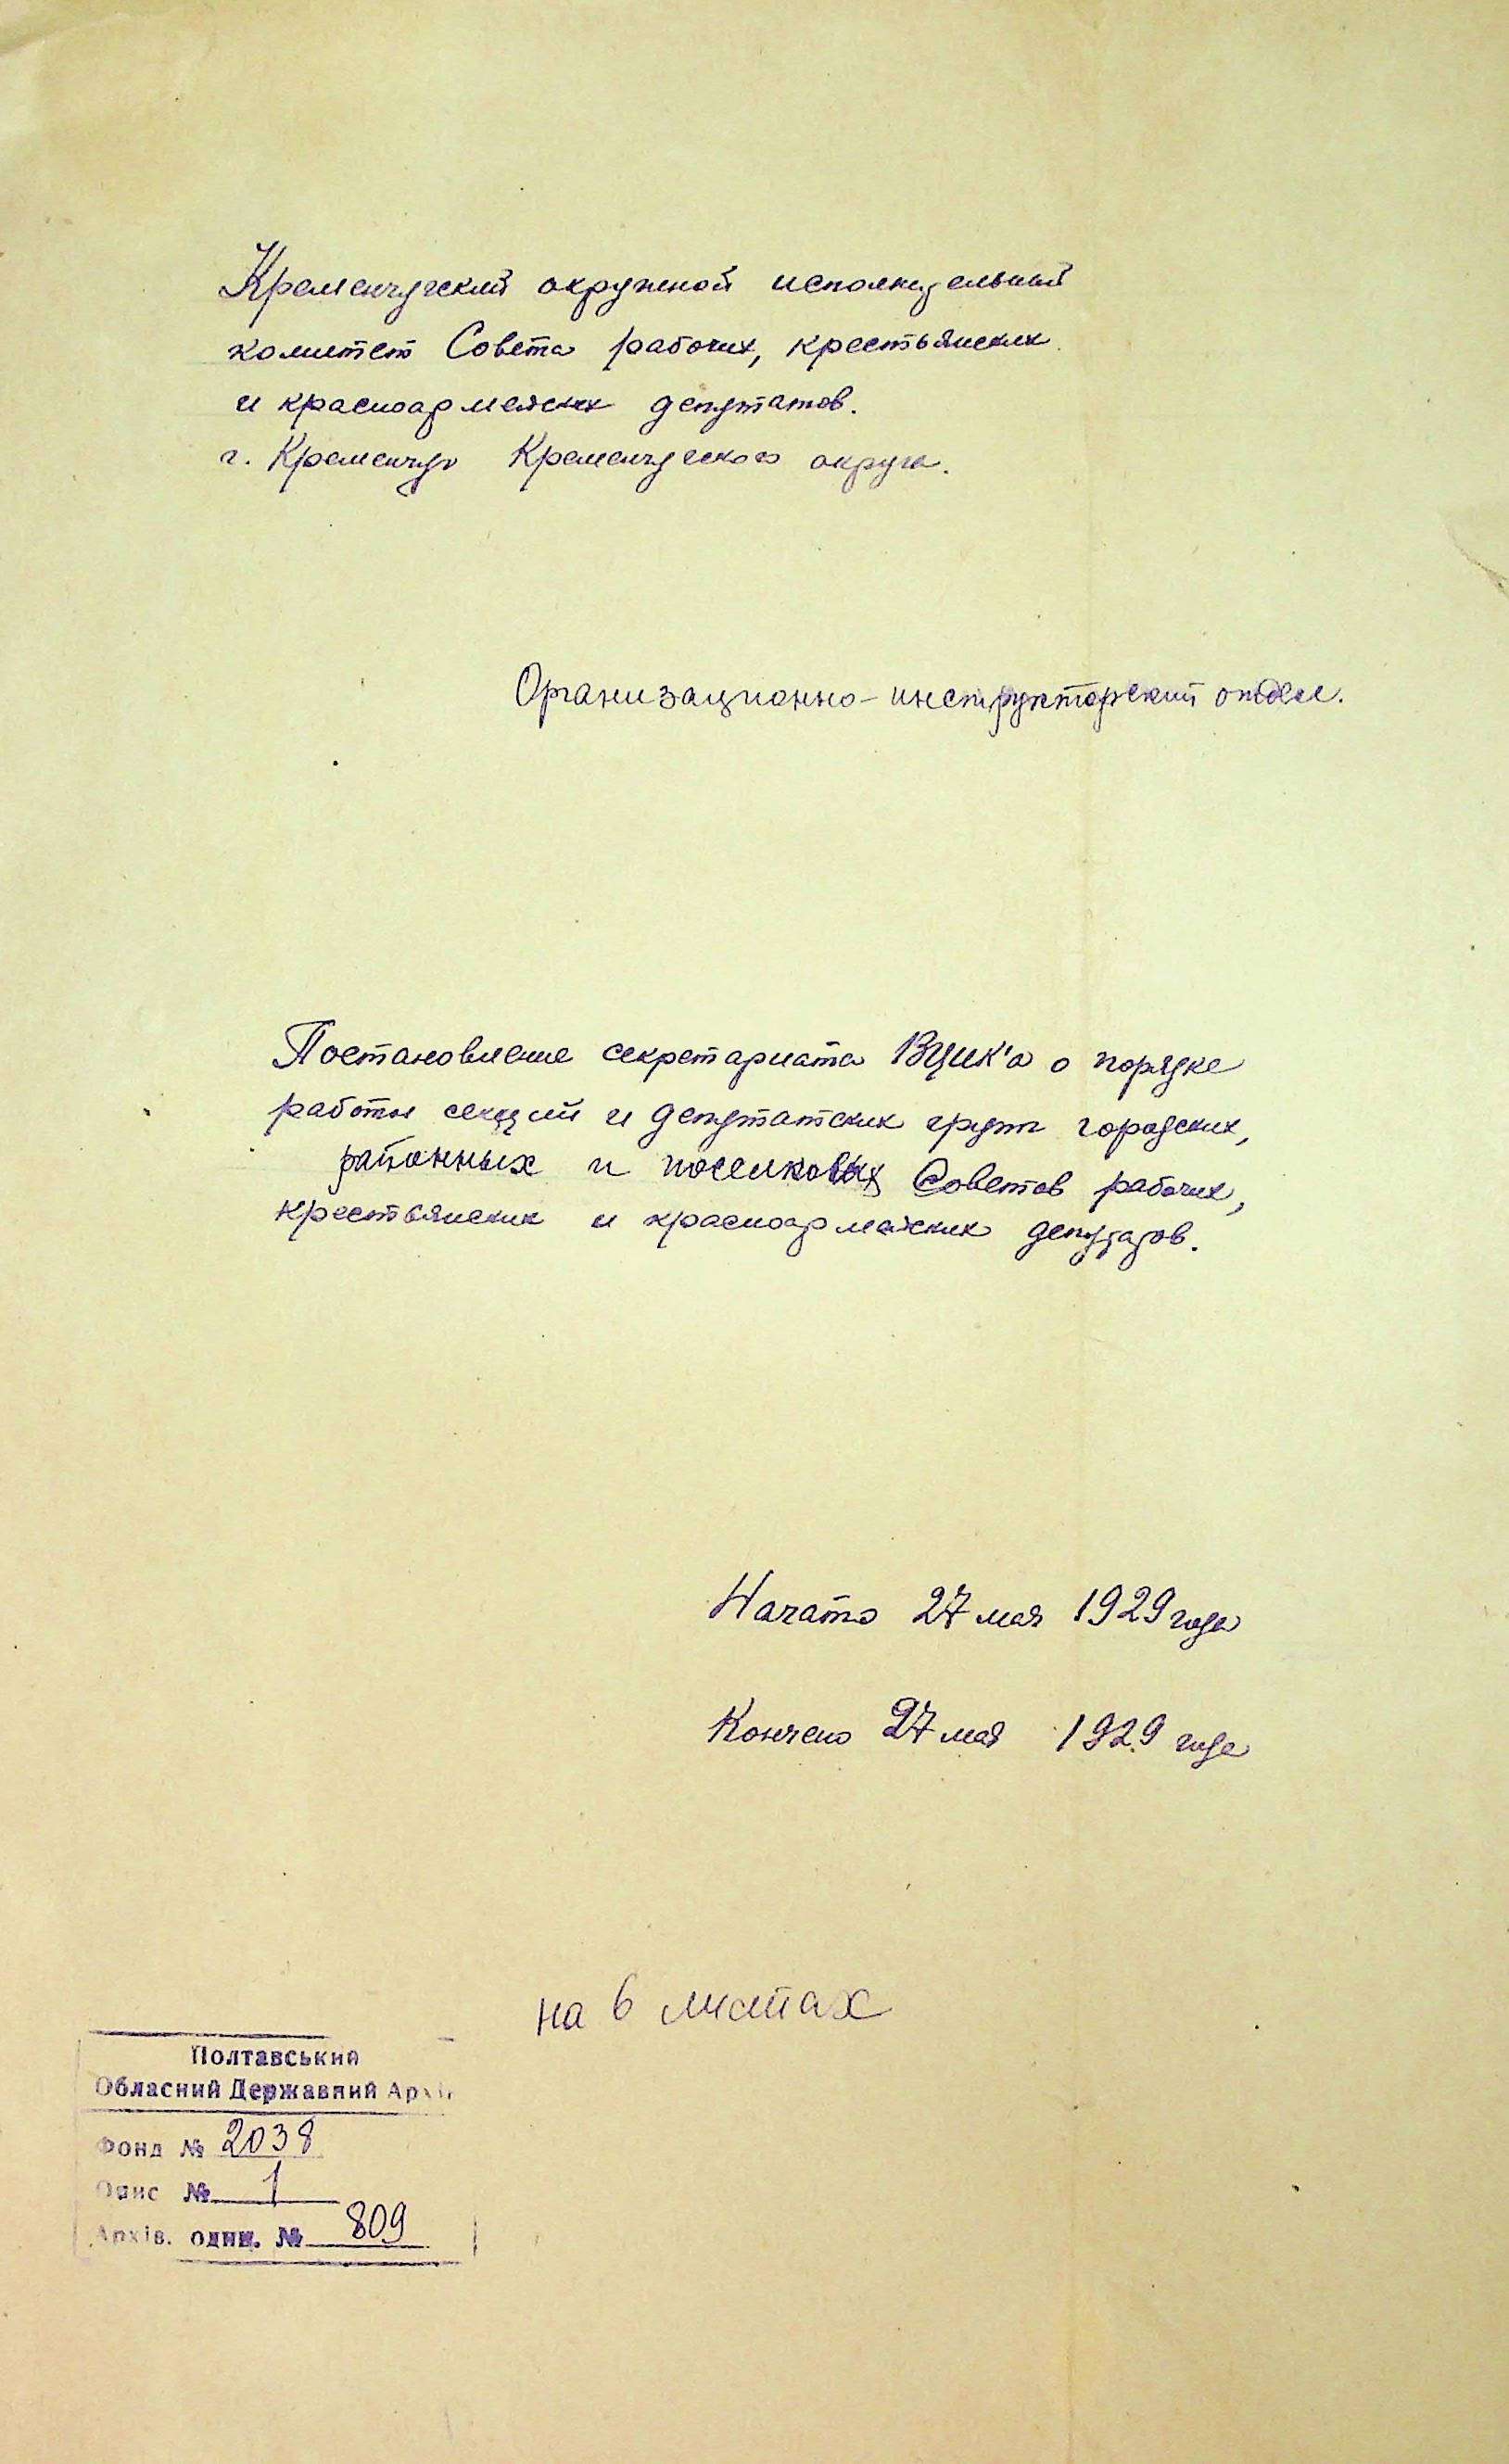 Кременчугский окружной исполнительный
комитет Совета рабочих, крестьянских
и красноармейских депутатов.
г. Кременчуг Кременчугского округа.
Организационно-инструкторский отдел.
Постановление секретариата ВЦИК'а о порядке
работы секций и депутатских групп городских,
районных и поселковых Советов рабочих,
крестьянских и красноармейских депутатов.
Начато 27 мая 1929 года
Кончено 27 мая 1929 года
на 6 листах
Полтавський
Обласний Державний Архів
Фонд № 2038
Опис № 1
Архів. один. № 809